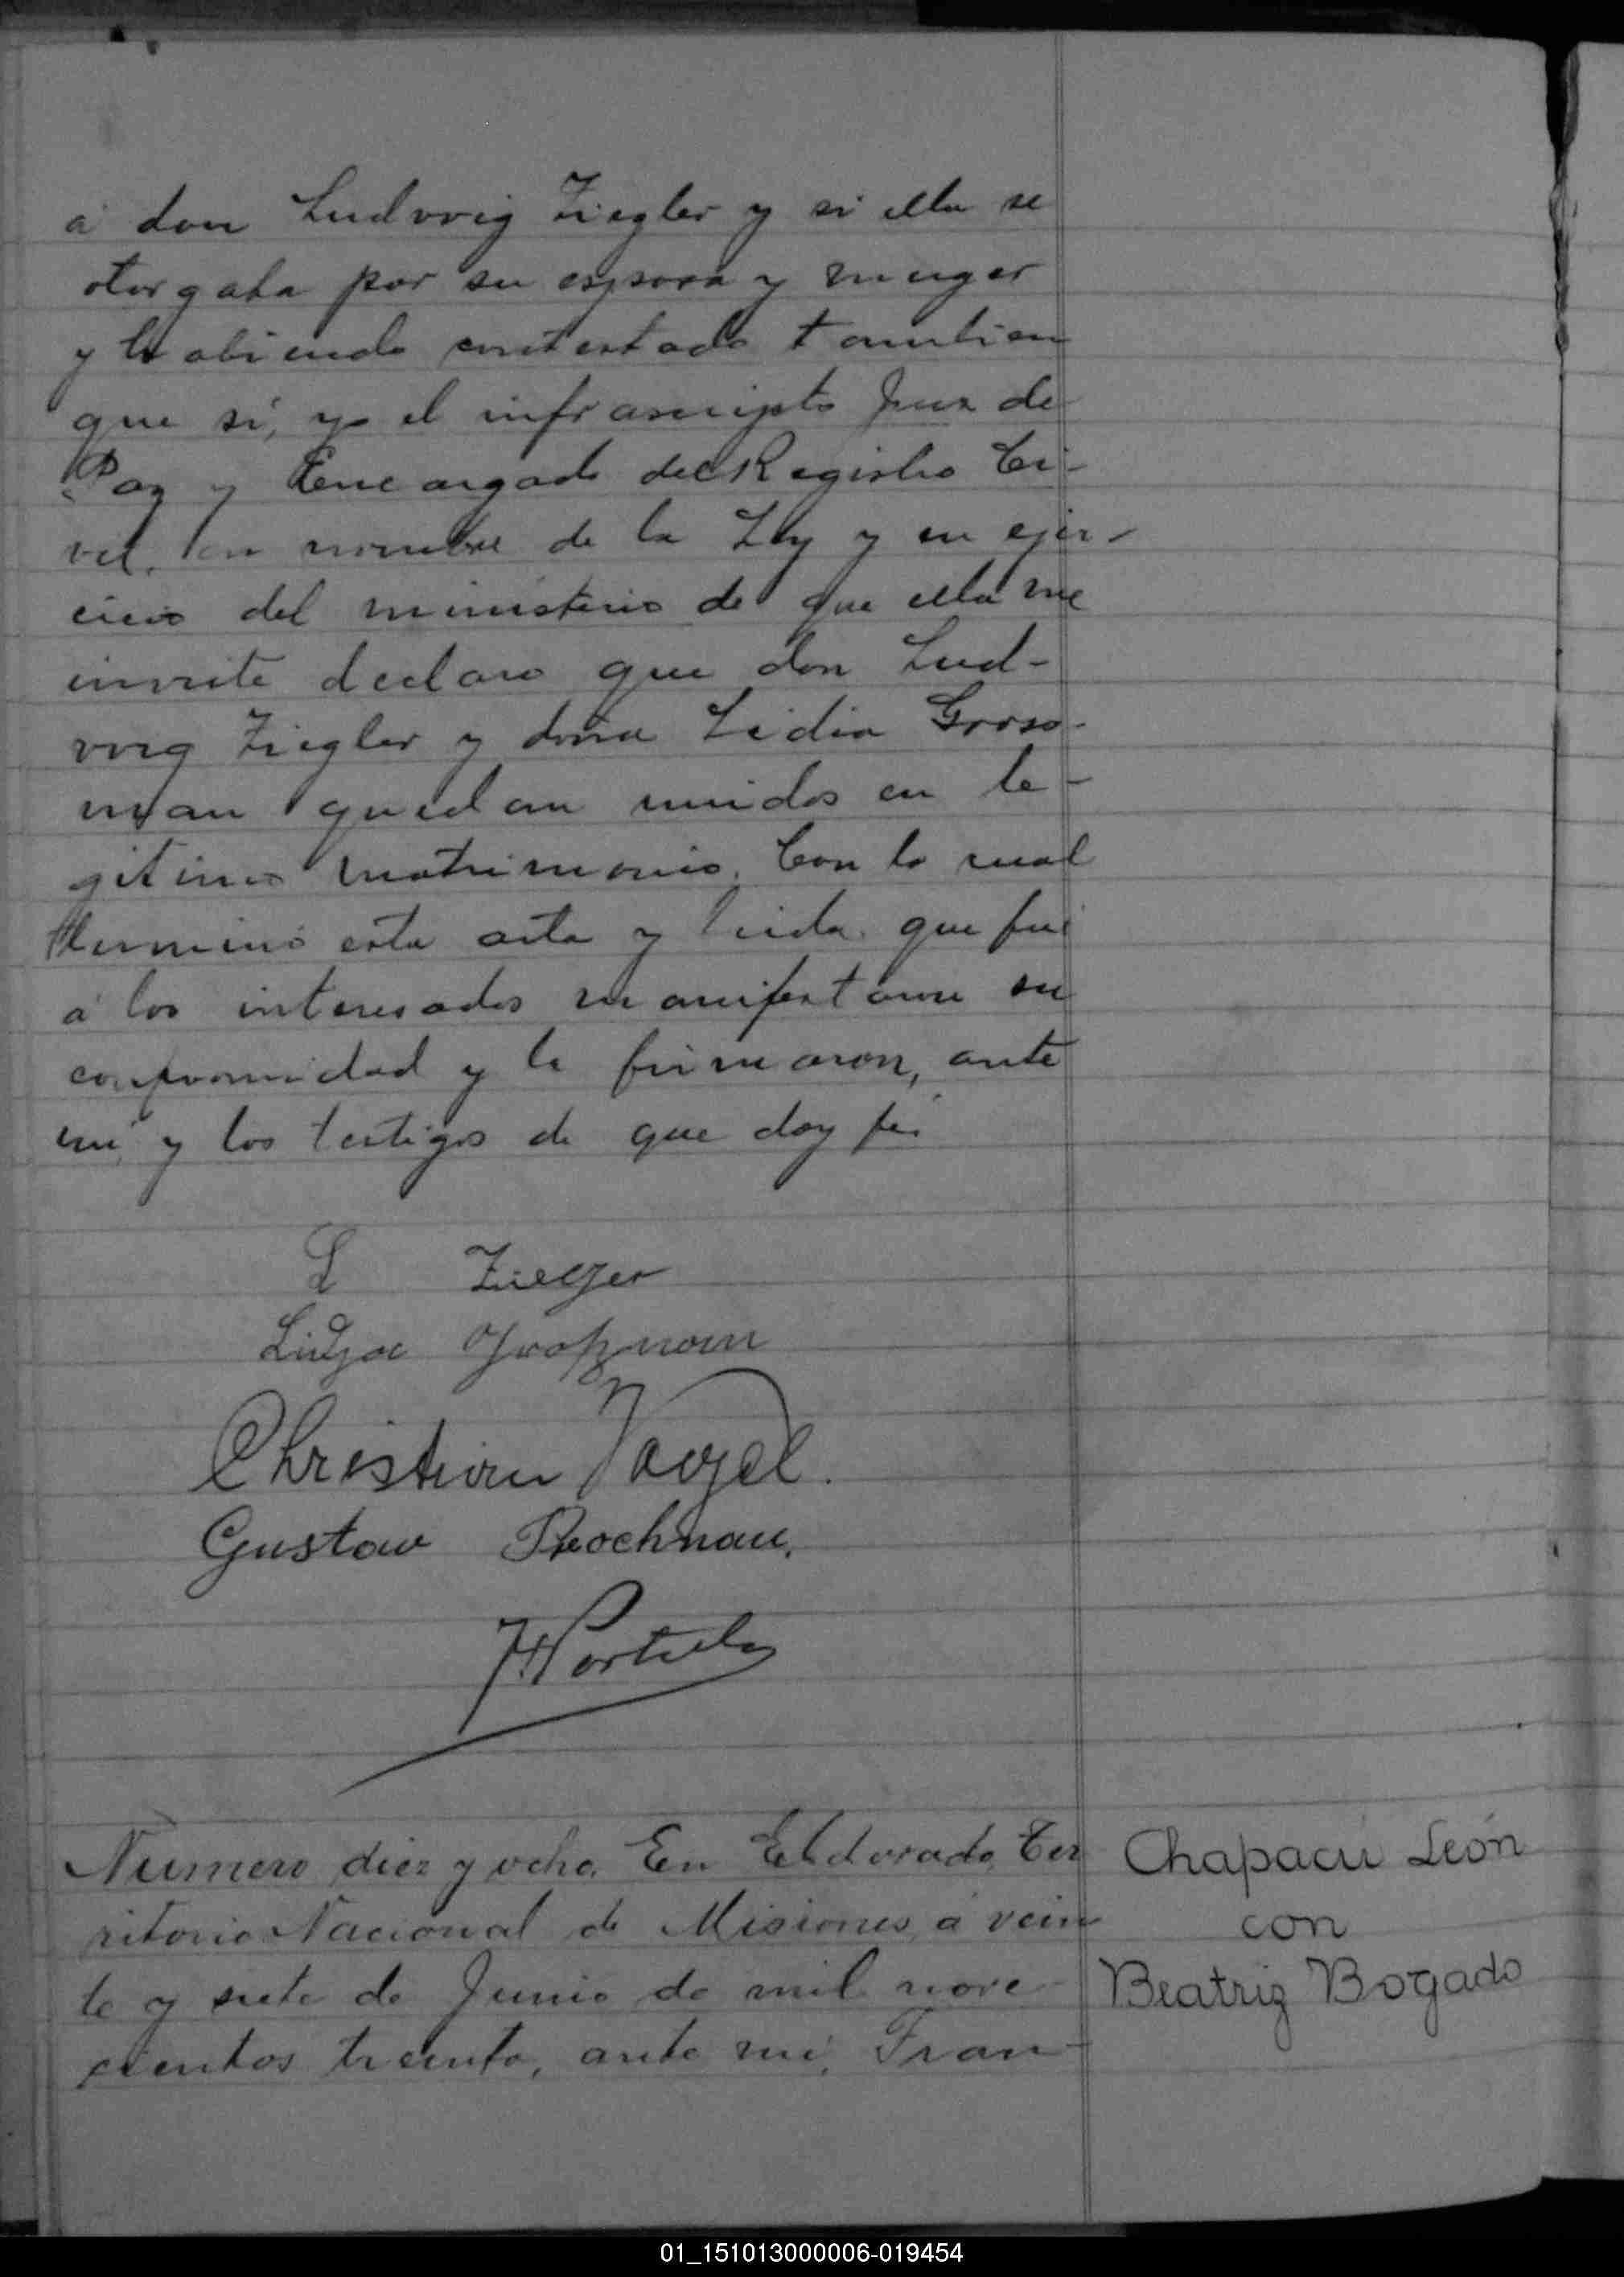 á don Ludvvig Ziegler y si ella se
otorgaba por su esposa y muger
y habiendo contestado tambien
que sí, yo el infrascripto Juez de
Paz y Encargado del Registro Ci-
vil, en nombre de la Ley y en ejer-
cicio del ministerio de que ella me
inviste declaro que don Lud-
vvig Ziegler y doña Lidia Gross-
man quedan unidos en le-
gitimo matrimonio. Con lo cual
terminó esta acta y leida que fué
á los interesados manifestaron su
conformidad y la firmaron, ante
mí y los testigos de que doy fé.
L Ziegler
Lidja Großmann
Christian Vogel.
Gustav Prochnau.
Número diez y ocho. En Eldorado, Ter
ritorio Nacional de Misiones, á vein
te y siete de Junio de mil nove-
cientos treinta, ante mí, Fran-
Chapacú León
con
Beatriz Bogado
01_151013000006-019454